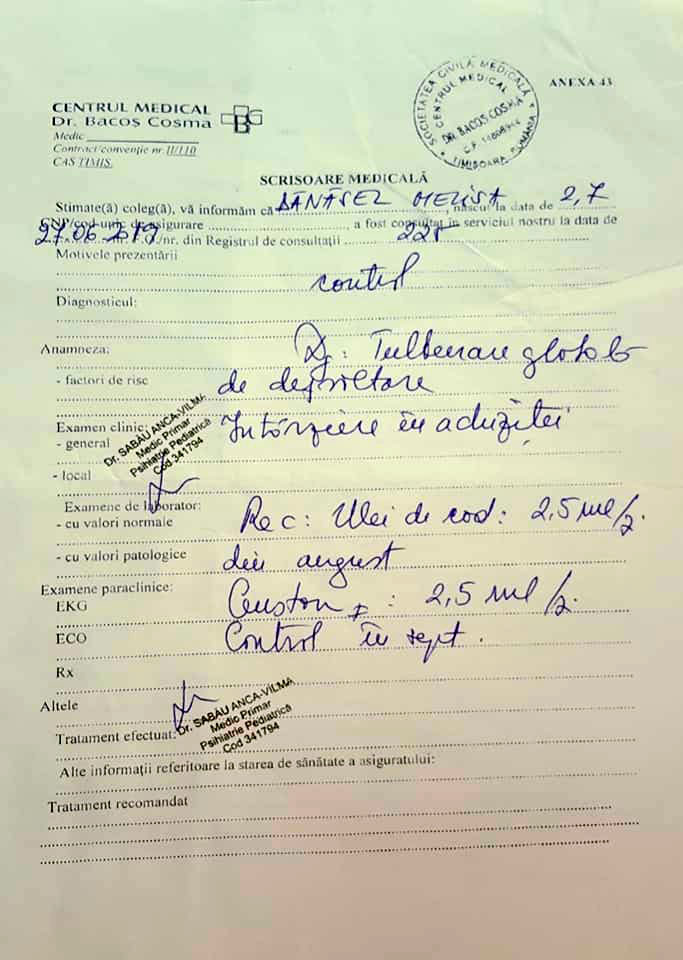 ANEXA 43
SOCIETATEA CIVILĂ MEDICALĂ
CENTRUL MEDICAL
DR. BACOȘ COSMA
TIMIȘOARA ROMÂNIA
CENTRUL MEDICAL
Dr. Bacoș Cosma
Medic
Contract/convenție nr. II/110
CAS TIMIȘ.
SCRISOARE MEDICALĂ
Stimate(ă) coleg(ă), vă informăm că DĂNĂSEL MELISA, născut la data de 2,7
CNP/cod unic de asigurare, a fost consultat în serviciul nostru la data de
27.06 2019 /nr. din Registrul de consultații 225
Motivele prezentării
control
Diagnosticul:
Anamneza: Dg: Tulburare globală
- factori de risc de dezvoltare
Examen clinic: Întârziere în achiziții
- general
Dr. SABĂU ANCA-VILMA
Medic Primar
Psihiatrie Pediatrică
Cod 341794
- local
Examene de laborator:
- cu valori normale Rec: Ulei de cod: 2,5 ml/z.
- cu valori patologice din august
Examene paraclinice:
EKG : 2,5 ml/z.
ECO Control în sept.
Rx
Altele
Dr. SABĂU ANCA-VILMA
Medic Primar
Psihiatrie Pediatrică
Cod 341794
Tratament efectuat:
Alte informații referitoare la starea de sănătate a asiguratului:
Tratament recomandat